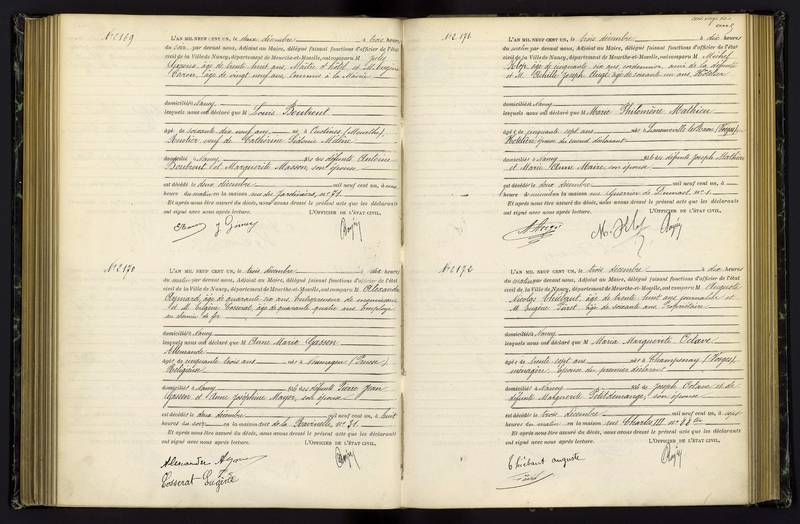 No 2169
L'AN MIL NEUF CENT UN, le deux décembre à trois heures
du soir, par devant nous, Adjoint au Maire, délégué faisant fonctions d'officier de l'état
civil de la Ville de Nancy, département de Meurthe-et-Moselle, ont comparu M Jules
âgé de trente huit ans, Maître d'hôtel et M. Eugène
âgé de vingt neuf ans, à la Mairie
domiciliés à Nancy
lesquels nous ont déclaré que M Louis Boutrout
âgé de soixante dix neuf ans né à Custines (Meurthe)
Rentier veuf de Catherine
domicilié à Nancy fils des défunts Antoine
Boutrout et Marguerite Masson son épouse
est décédé le deux décembre mil neuf cent un, à
heures du matin en la maison rue des Jardiniers, no 71
Et après nous être assuré du décès, nous avons dressé le présent acte que les déclarants
ont signé avec nous après lecture. L'OFFICIER DE L'ÉTAT CIVIL,
No 2170
L'AN MIL NEUF CENT UN, le trois décembre à dix heures
du matin par devant nous, Adjoint au Maire, délégué faisant fonctions d'officier de l'état
civil de la Ville de Nancy, département de Meurthe-et-Moselle, ont comparu M Alexandre
âgé de quarante six ans, Entrepreneur de
et M. Eugène Cosserat, âgé de quarante quatre ans Employé
au chemin de fer
domiciliés à Nancy
lesquels nous ont déclaré que M Anne Marie Gassen
Allemande
âgée de cinquante trois ans née à (Prusse)
Religieuse
domiciliée à Nancy fille des défunts Pierre Jean
Gassen et Anne Joséphine Mayer, son épouse
est décédée le deux décembre mil neuf cent un, à huit
heures du soir en la maison rue de la Ravinelle, no 31
Et après nous être assuré du décès, nous avons dressé le présent acte que les déclarants
ont signé avec nous après lecture. L'OFFICIER DE L'ÉTAT CIVIL,
Alexandre
Cosserat Eugène
No 2171
L'AN MIL NEUF CENT UN, le trois décembre à dix heures
du matin par devant nous, Adjoint au Maire, délégué faisant fonctions d'officier de l'état
civil de la Ville de Nancy, département de Meurthe-et-Moselle, ont comparu M Michel
âgé de cinquante six ans cordonnier, ami de la défunte
et M. Achille Joseph âgé de soixante un ans, Hôtelier
domiciliés à Nancy
lesquels nous ont déclaré que M Marie Philomène Mathieu
âgée de cinquante sept ans née à (Vosges)
Hôtelière épouse du second déclarant
domiciliée à Nancy fille des défunts Joseph Mathieu
et Marie Anne Maire, son épouse
est décédée le deux décembre mil neuf cent un, à
heures en la maison rue Guerrier de Dumast no 1
Et après nous être assuré du décès, nous avons dressé le présent acte que les déclarants
ont signé avec nous après lecture. L'OFFICIER DE L'ÉTAT CIVIL,
No 2172
L'AN MIL NEUF CENT UN, le trois décembre à dix heures
du matin par devant nous, Adjoint au Maire, délégué faisant fonctions d'officier de l'état
civil de la Ville de Nancy, département de Meurthe-et-Moselle, ont comparu M Auguste
Nicolas Thiébaut, âgé de trente huit ans journalier et
M. Eugène âgé de soixante ans Propriétaire
domiciliés à Nancy
lesquels nous ont déclaré que M Maria Marguerite Octave
âgée de trente sept ans née à Champenay (Vosges)
ménagère épouse du premier déclarant
domiciliée à Nancy fille de Joseph Octave et de
défunte Marguerite Petitdemange, son épouse
est décédée le trois décembre mil neuf cent un, à sept
heures du matin en la maison rue Charles III no 88 ter
Et après nous être assuré du décès, nous avons dressé le présent acte que les déclarants
ont signé avec nous après lecture. L'OFFICIER DE L'ÉTAT CIVIL,
Thiébaut auguste